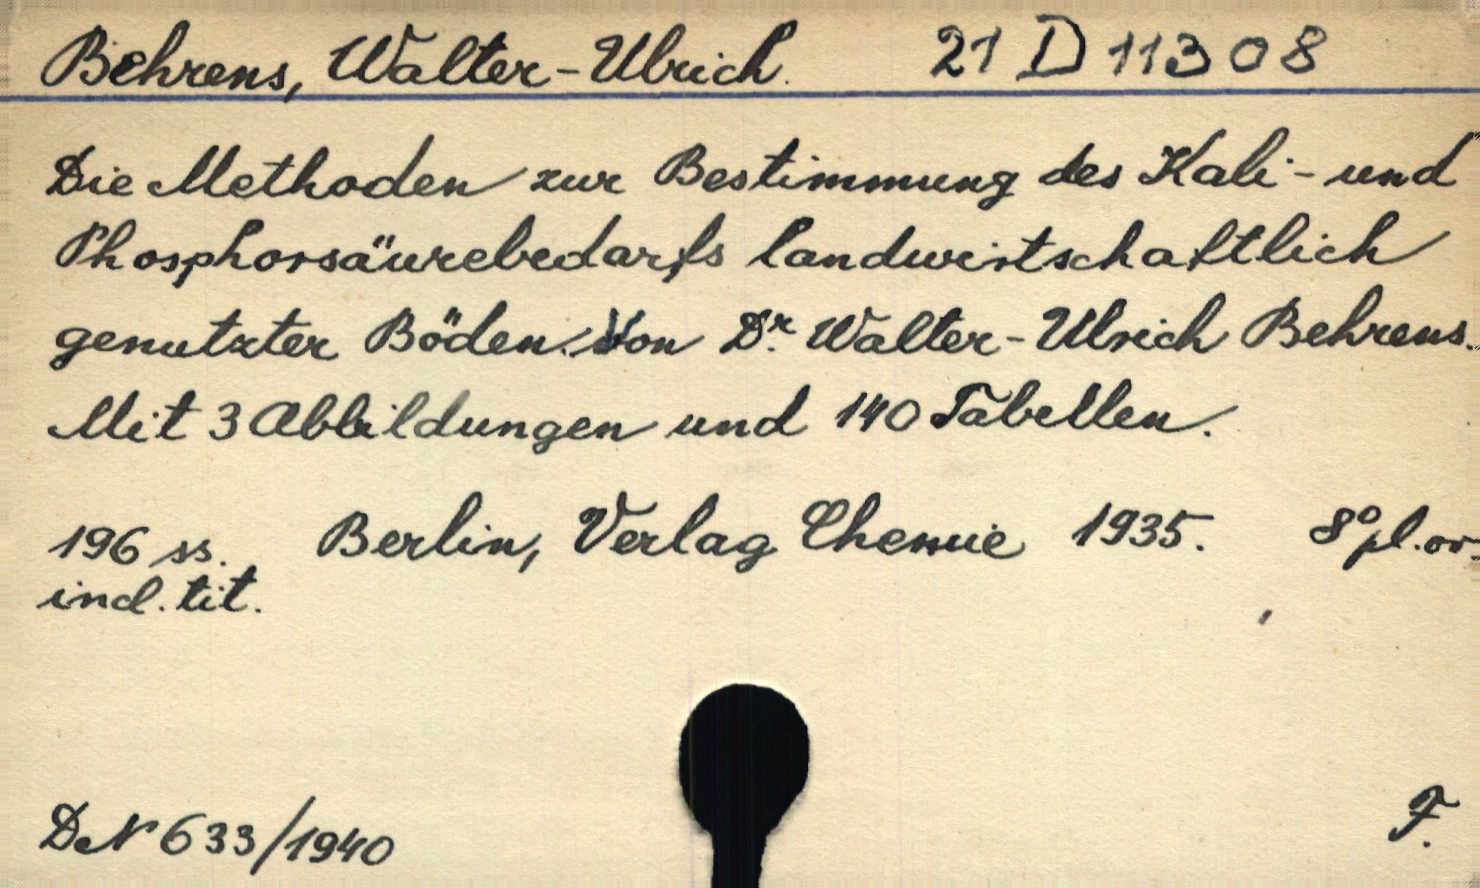 Behrens, Walter-Ulrich. 21 D 11308
Die Methoden zur Bestimmung des Kali- und
Phosphorsäurebedarfs landwirtschaftlich
genutzter Böden. Von Dr. Walter-Ulrich Behrens.
Mit 3 Abbildungen und 140 Tabellen.
196 ss. Berlin, Verlag Chemie 1935. 8° pl. or.
ind. tit.
DN 633/1940 F.